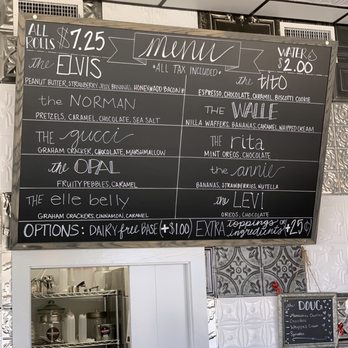 ALL ROLLS $7.25
menu
*ALL TAX INCLUDED*
WATER $2.00
the ELVIS
PEANUT BUTTER, STRAWBERRY, BANANAS, HONEYWOOD BACON
the NORMAN
PRETZELS, CARAMEL, CHOCOLATE, SEA SALT
THE gucci
GRAHAM CRACKER, CHOCOLATE, MARSHMALLOW
the OPAL
FRUITY PEBBLES, CARAMEL
THE elle belly
GRAHAM CRACKERS, CINNAMON, CARAMEL
the TITO
ESPRESSO, CHOCOLATE, CARAMEL, BISCOTTI COOKIE
THE WALLE
NILLA WAFFERS, BANANAS, CARAMEL, WHIPPED CREAM
THE rita
MINT OREOS, CHOCOLATE
the annie
BANANAS, STRAWBERRIES, NUTELLA
the LEVI
OREOS, CHOCOLATE
OPTIONS: DAIRY free BASE +$1.00 EXTRA toppings or ingredients +25¢
THE DOUG